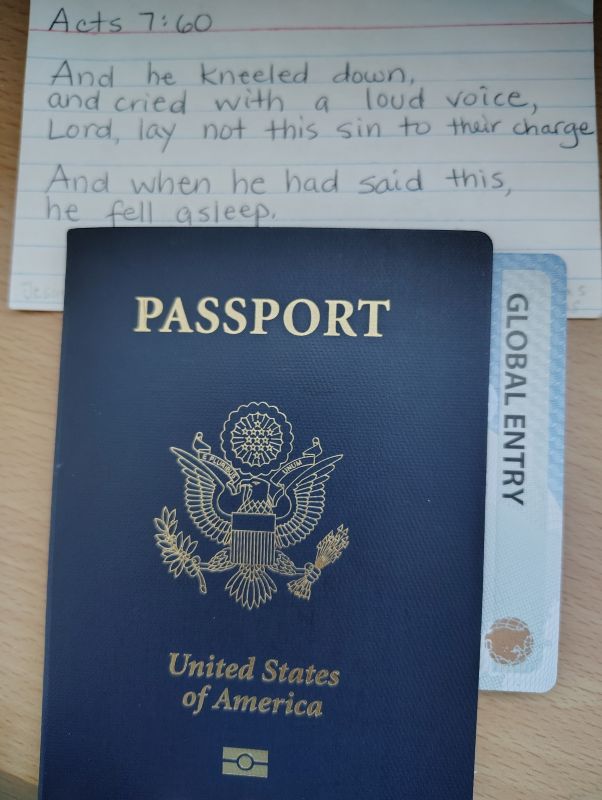 Acts 7:60
And he kneeled down,
and cried with a loud voice,
Lord, lay not this sin to their charge
And when he had said this,
he fell asleep.
PASSPORT
E PLURIBUS UNUM
United States
of America
GLOBAL ENTRY